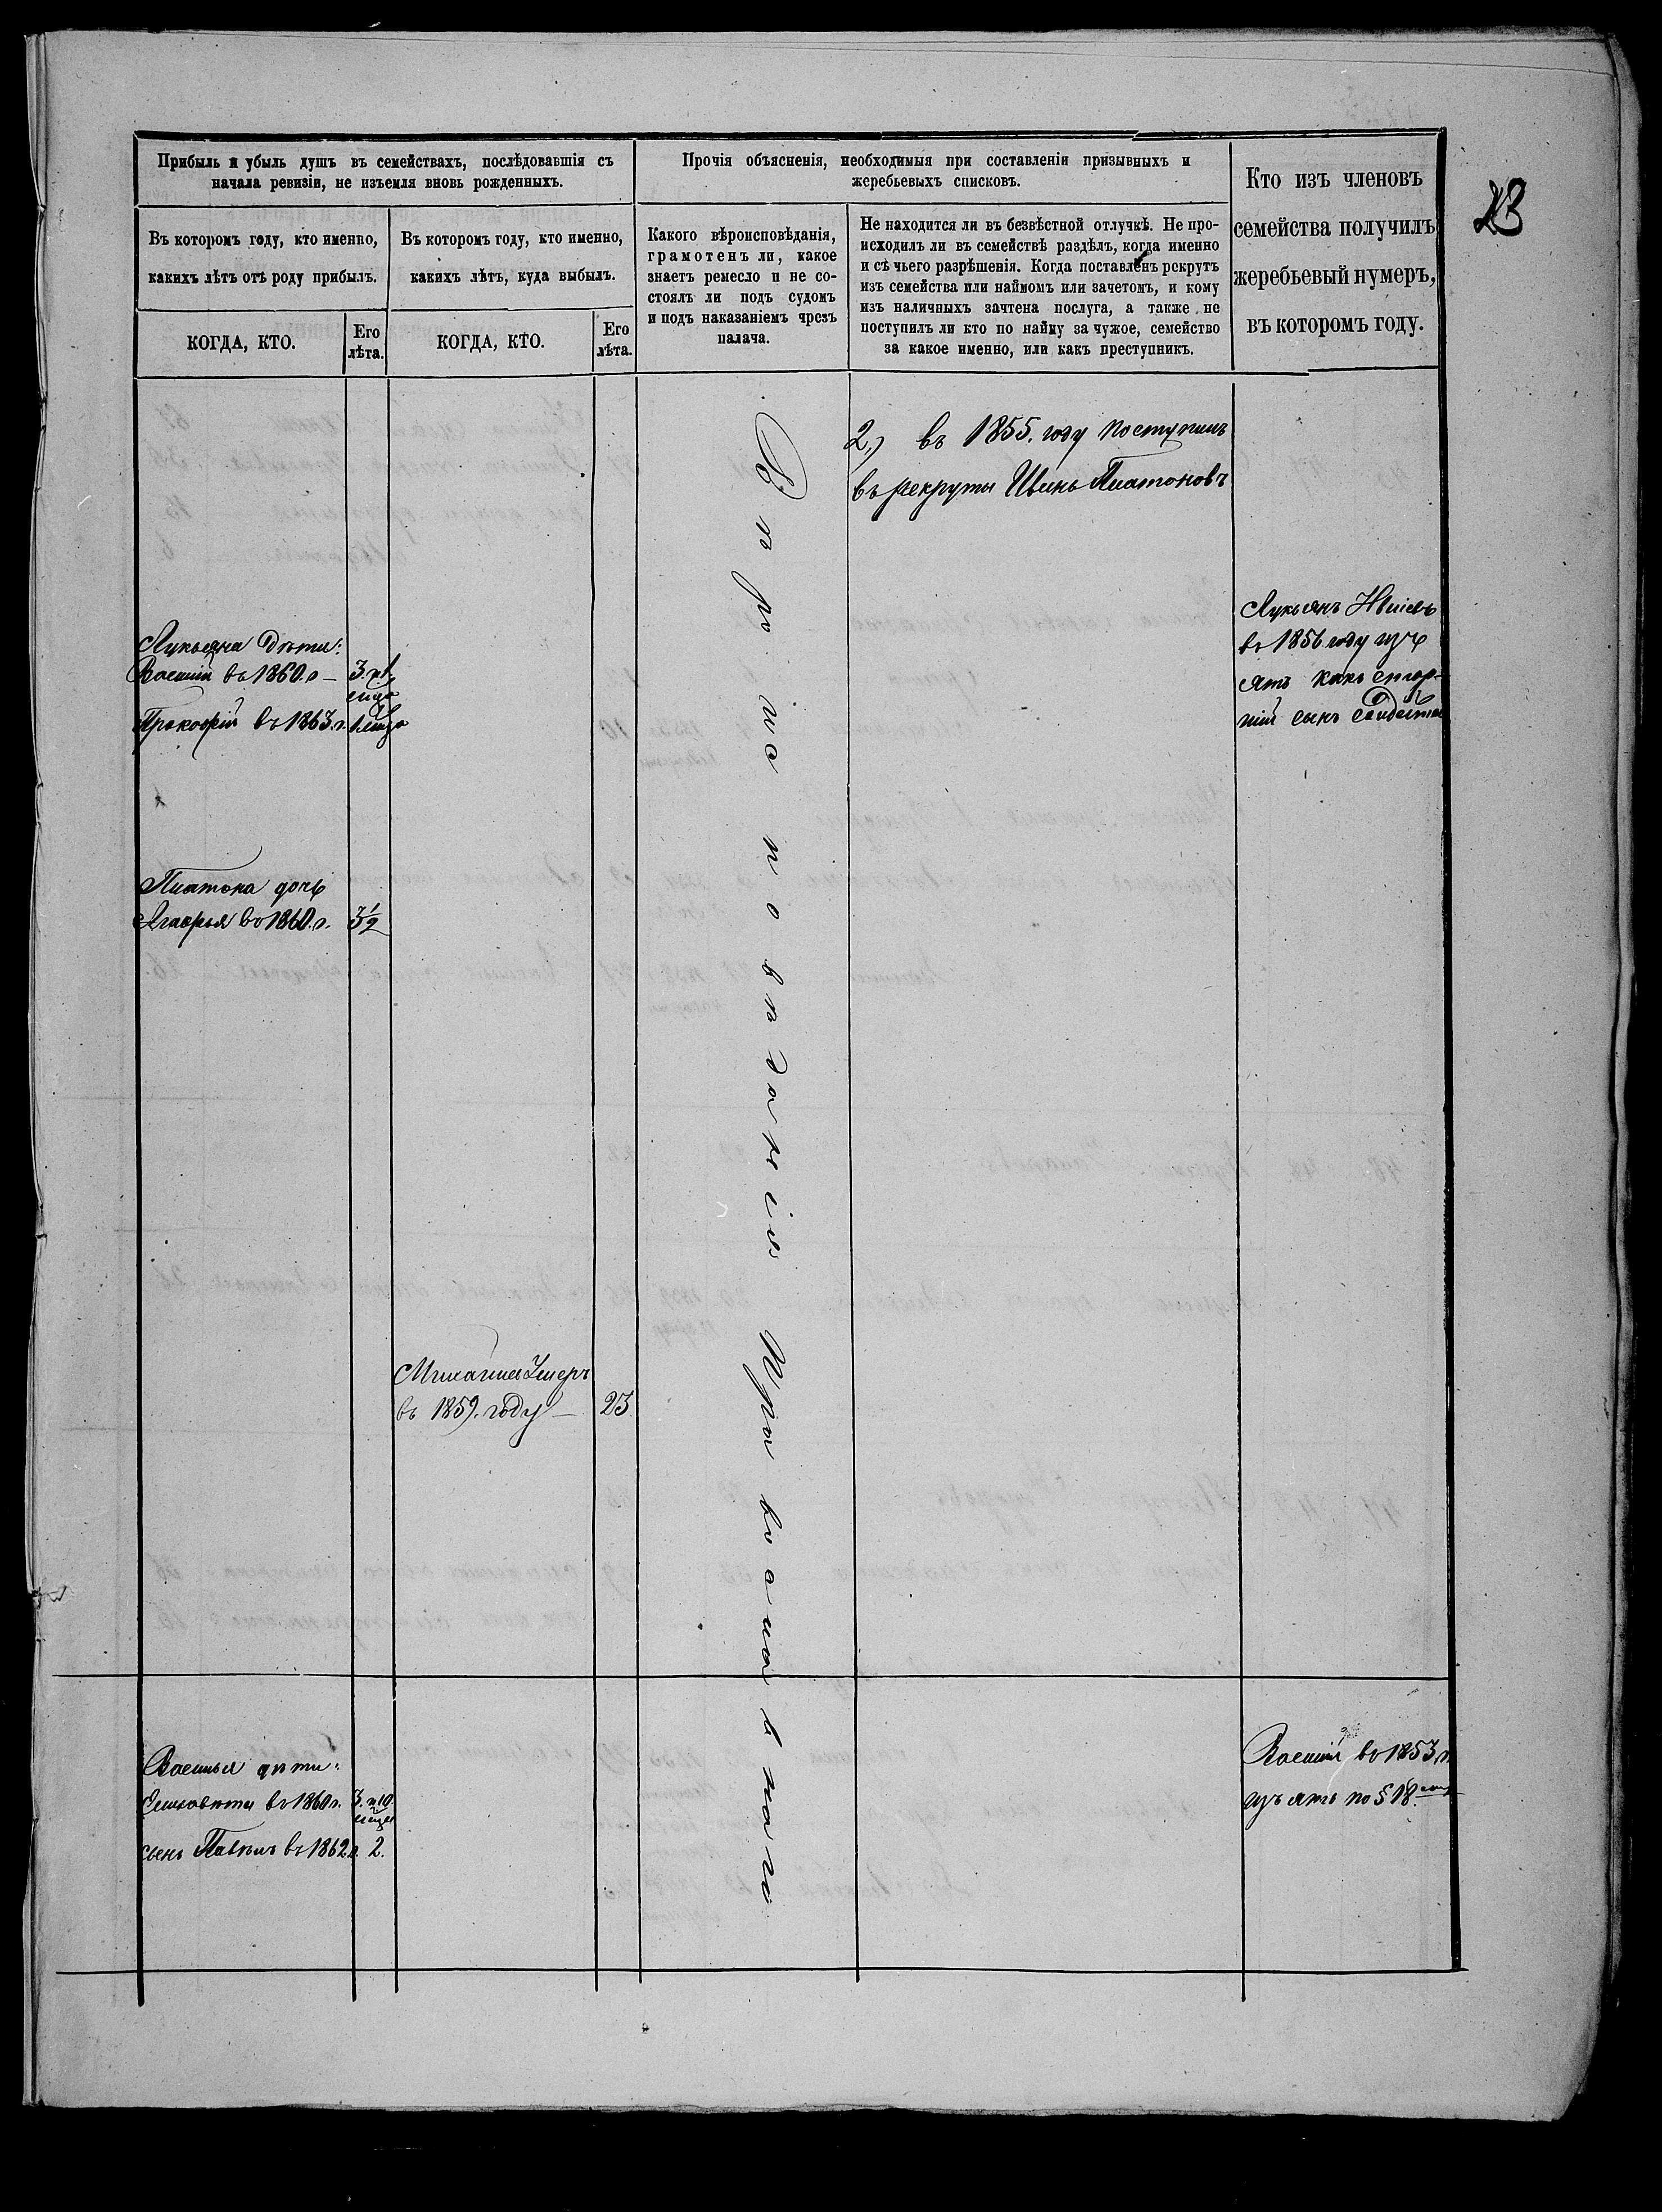 23
Прибыль и убыль душъ въ семействахъ, послѣдовавшія съ
начала ревизіи, не изъемля вновь рожденныхъ.
Въ которомъ году, кто именно,
какихъ лѣтъ отъ роду прибылъ.
КОГДА, КТО.
Его
лѣта.
Въ которомъ году, кто именно,
какихъ лѣтъ, куда выбылъ.
КОГДА, КТО.
Его
лѣта.
Прочія объясненія, необходимыя при составленіи призывныхъ и
жеребьевыхъ списковъ.
Какого вѣроисповѣданія,
грамотенъ ли, какое
знаетъ ремесло и не со-
стоялъ ли подъ судомъ
и подъ наказаніемъ чрезъ
палача.
Не находится ли въ безвѣстной отлучкѣ. Не про-
исходилъ ли въ семействѣ раздѣлъ, когда именно
и съ чьего разрѣшенія. Когда поставленъ рекрутъ
изъ семейства или наймомъ или зачетомъ, и кому
изъ наличныхъ зачтена послуга, а также не
поступилъ ли кто по найму за чужое, семейство
за какое именно, или какъ преступникъ.
Кто изъ членовъ
семейства получилъ
жеребьевый нумеръ,
въ которомъ году.
2.) въ 1855. году поступилъ
въ рекруты Иванъ Платоновъ
Лукьяна дѣти:
Василій въ 1860. г — 3.
Прокофій въ 1863. г. 1
Лукьянъ
въ 1856 году изъ
ятъ какъ стар-
шій сынъ
Платона дочь
Агафья въ 1860. г. 3½
Михаила Умеръ
въ 1859. году — 23.
Вѣроисповѣданія Православнаго
Василья дѣти:
въ 1860 г. 3. и 10
сынъ Павелъ въ 1862. г. 2.
Василій въ 1853 г.
изъятъ по § 18